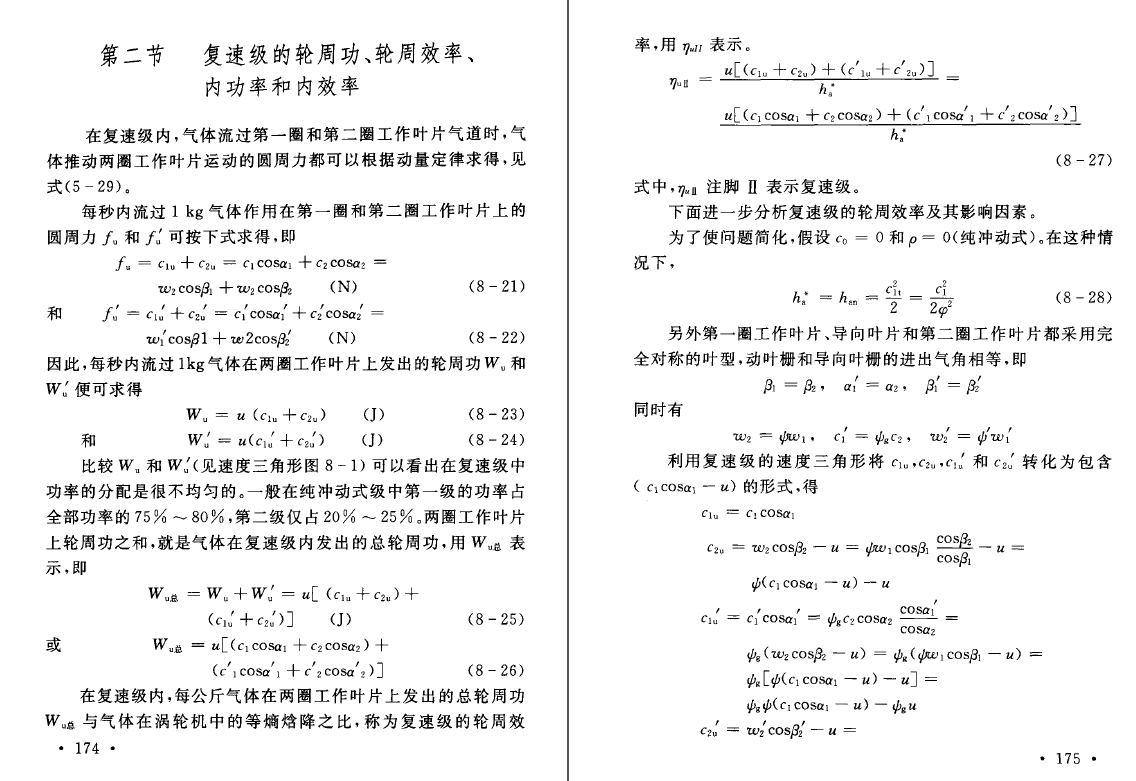 第二节 复速级的轮周功、轮周效率、
内功率和内效率
在复速级内,气体流过第一圈和第二圈工作叶片气道时,气
体推动两圈工作叶片运动的圆周力都可以根据动量定律求得,见
式(5-29)。
每秒内流过 1 kg 气体作用在第一圈和第二圈工作叶片上的
圆周力 fᵤ 和 fᵤ′ 可按下式求得,即
fᵤ = c₁ᵤ + c₂ᵤ = c₁cosα₁ + c₂cosα₂ =
w₂cosβ₁ + w₂cosβ₂ (N) (8-21)
和 fᵤ′ = c₁ᵤ′ + c₂ᵤ′ = c₁′cosα₁′ + c₂′cosα₂′ =
w₁′cosβ1 + w2cosβ₂′ (N) (8-22)
因此,每秒内流过1kg气体在两圈工作叶片上发出的轮周功Wᵤ和
Wᵤ′ 便可求得
Wᵤ = u (c₁ᵤ + c₂ᵤ) (J) (8-23)
和 Wᵤ′ = u(c₁ᵤ′ + c₂ᵤ′) (J) (8-24)
比较 Wᵤ 和 Wᵤ′(见速度三角形图 8-1) 可以看出在复速级中
功率的分配是很不均匀的。一般在纯冲动式级中第一级的功率占
全部功率的75% ~ 80%,第二级仅占20% ~ 25%。两圈工作叶片
上轮周功之和,就是气体在复速级内发出的总轮周功,用 Wᵤ总 表
示,即
Wᵤ总 = Wᵤ + Wᵤ′ = u[ (c₁ᵤ + c₂ᵤ) +
(c₁ᵤ′ + c₂ᵤ′)] (J) (8-25)
或 Wᵤ总 = u[(c₁cosα₁ + c₂cosα₂) +
(c′₁cosα′₁ + c′₂cosα′₂)] (8-26)
在复速级内,每公斤气体在两圈工作叶片上发出的总轮周功
Wᵤ总 与气体在涡轮机中的等熵焓降之比,称为复速级的轮周效
· 174 ·
率,用 ηᵤII 表示。
ηᵤⅡ = u[(c₁ᵤ + c₂ᵤ) + (c′₁ᵤ + c′₂ᵤ)] / hₐ* =
u[(c₁cosα₁ + c₂cosα₂) + (c′₁cosα′₁ + c′₂cosα′₂)] / hₐ*
(8-27)
式中,ηᵤⅡ 注脚 Ⅱ 表示复速级。
下面进一步分析复速级的轮周效率及其影响因素。
为了使问题简化,假设 c₀ = 0 和 ρ = 0(纯冲动式)。在这种情
况下,
hₐ* = hₐₙ = c₁ₜ²/2 = c₁²/2φ² (8-28)
另外第一圈工作叶片、导向叶片和第二圈工作叶片都采用完
全对称的叶型,动叶栅和导向叶栅的进出气角相等,即
β₁ = β₂, α₁′ = α₂, β₁′ = β₂′
同时有
w₂ = ψw₁, c₁′ = ψg c₂, w₂′ = ψ′w₁′
利用复速级的速度三角形将 c₁ᵤ,c₂ᵤ,c₁ᵤ′ 和 c₂ᵤ′ 转化为包含
( c₁cosα₁ - u) 的形式,得
c₁ᵤ = c₁cosα₁
c₂ᵤ = w₂cosβ₂ - u = ψw₁cosβ₁ cosβ₂/cosβ₁ - u =
ψ(c₁cosα₁ - u) - u
c₁ᵤ′ = c₁′cosα₁′ = ψg c₂cosα₂ cosα₁′/cosα₂ =
ψg(w₂cosβ₂ - u) = ψg(ψw₁cosβ₁ - u) =
ψg[ψ(c₁cosα₁ - u) - u] =
ψgψ(c₁cosα₁ - u) - ψg u
c₂ᵤ′ = w₂′cosβ₂′ - u =
· 175 ·